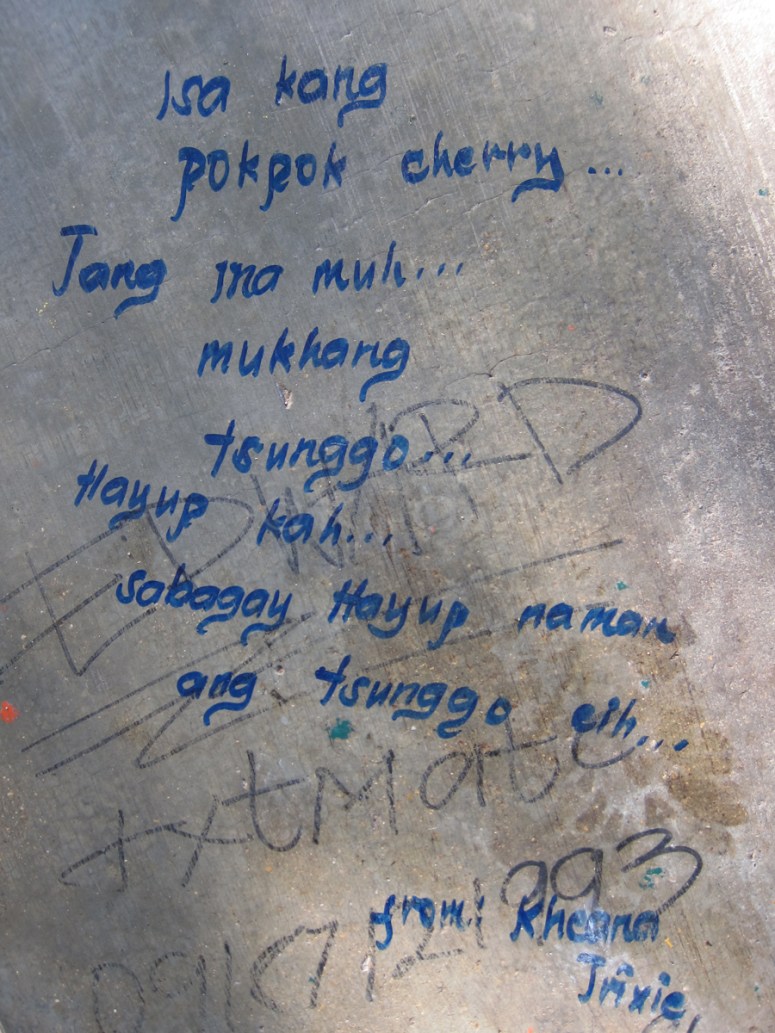 isa kang
pokpok cherry...
Tang ina muh...
mukhang
tsunggo...
Hayup kah...
sabagay Hayup naman
ang tsunggo eih...
EDWARD
txtMate
from: Kheana
Trixie